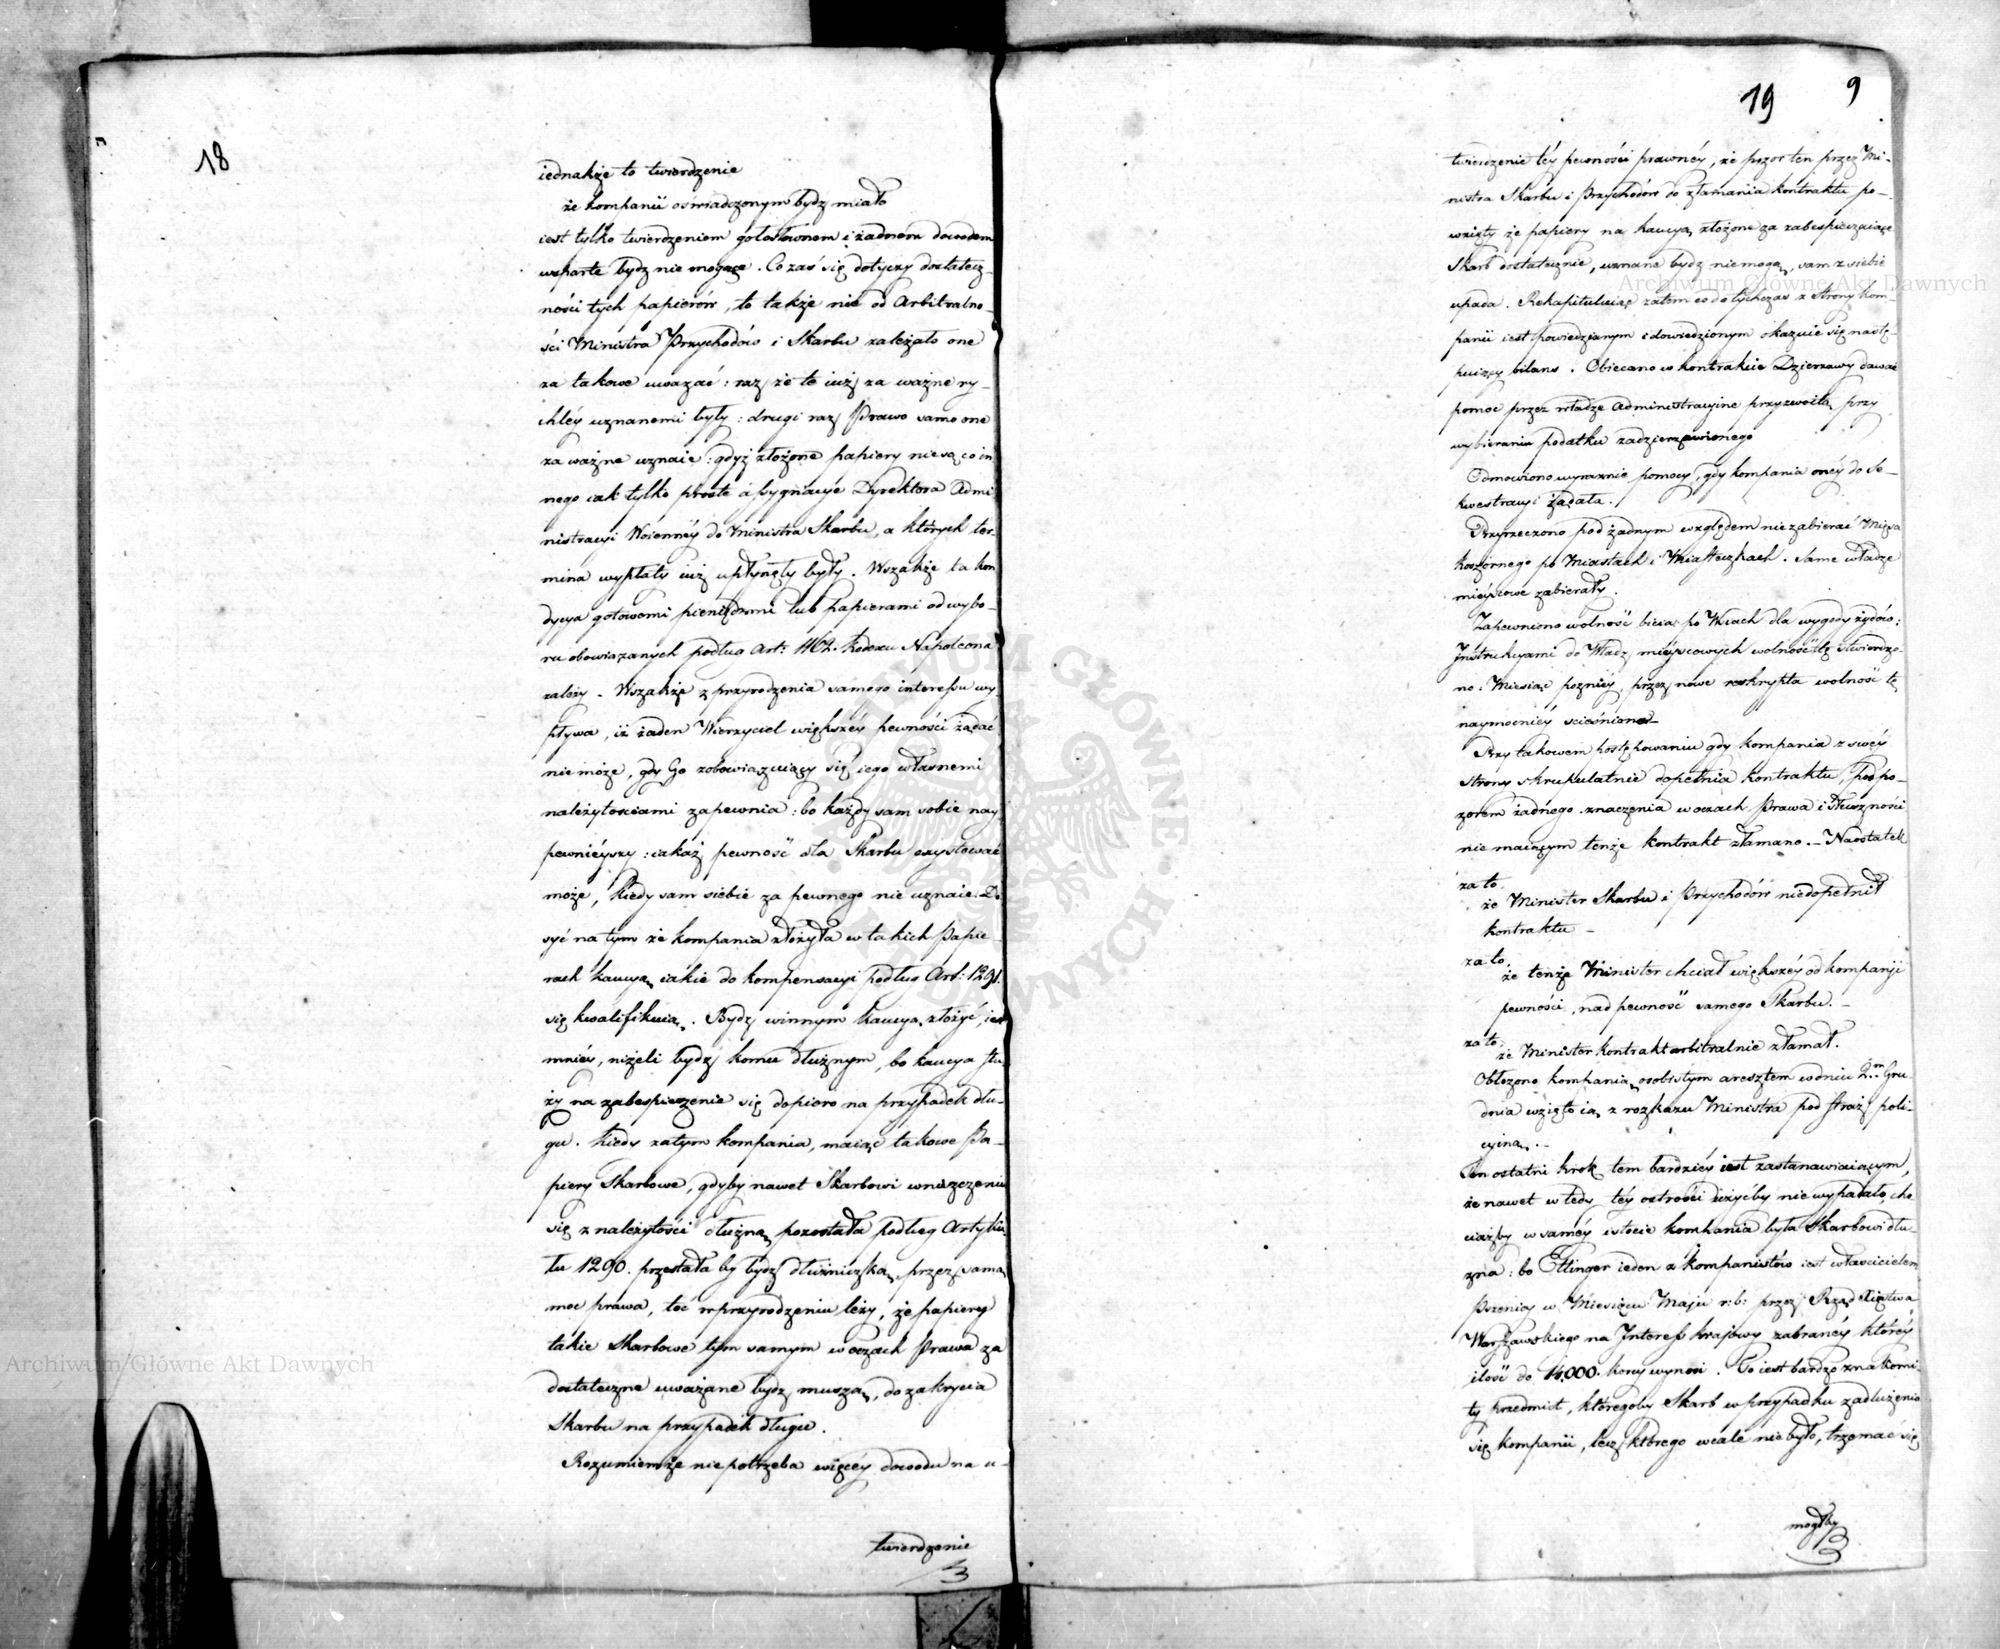 18
iednakże to twierdzenie
że kompanii oświadczonym bydz miało
iest tylko twierdzeniem gołosłownem i żadnem dowodem
wsparte bydz nie mogące. Co zaś się dotyczy dostatecz-
ności tych papierów, to także nie od Arbitralno-
ści Ministra Przychodów i Skarbu zależało one
za takowe uważać: raz że te iuż za ważne ry-
chléy uznanemi były: drugi raz Prawo samo one
za ważne uznaie: gdyż złożone papiery nie są co in
nego iak tylko proste assygnacye Dyrektora Admi
nistracyi Woiennéy do Ministra Skarbu, a których ter-
mina wypłaty iuż upłynęły były. Wszakże ta kon
dycya gotowemi pieniędzmi lub papierami od wybo-
ru obowiązanych podług Art: 1162. Kodexu Napoleona
zależy. Wszakże z przyrodzenia samego interessu wy
pływa, iż żaden Wierzyciel większéy pewności żądać
nie może, gdy Go zobowiązuiący się iego własnemi
należytościami zapewnia: bo każdy sam sobie nay
pewnieyszy: iakaż pewność dla Skarbu exystować
może, kiedy sam siebie za pewnego nie uznaie. Do
syć na tym że kompania złożyła w takich Papie-
rach kaucyą, iakie do kompensacyi podług Art: 1291.
się kwalifikuią. Bydz winnym kaucyą złożyć, iest
mniéy, niżeli bydz komu dłużnym, bo kaucya słu-
ży na zabespieczenie się dopiero na przypadek dłu-
gu. Kiedy zatym kompania, maiąc takowe Pa-
piery Skarbowe, gdyby nawet Skarbowi w uiszczeniu
się z należytości dłużną pozostała podług Artyku-
łu 1290. przestała by bydz dłużniczką, przez samą
moc prawa, toć w przyrodzeniu leży, że papiery
takie Skarbowe tym samym w oczach Prawa za
dostateczne uważane bydz muszą, do zakrycia
Skarbu na przypadek długu.
Rozumiem że nie potrzeba więcéy dowodu na u-
twierdzenie
19 9
twierdzenie téy pewności prawnéy, że pozor ten przez Mi-
nistra Skarbu i Przychodów do złamania kontraktu po-
wzięty że papiery na kaucyą złożone za zabespieczaiące
Skarb dostatecznie, uznane bydz niemogą, sam z siebie
upada. Rekapituluiąc zatem co dotychczas z Strony kom-
panii iest powiedzianym i dowiedzionym okazuie się nastę-
puiący bilans. Obiecano w kontrakcie Dzierzawy dawać
pomoc przez władze Administracyine przyzwoitą, przy
wybieraniu podatku zadzierzawionego
Odmowiono wyraznie pomocy, gdy kompania onéy do Se-
kwestracyi żądała.
Przyrzeczono pod żadnym względem nie zabierać Mięsa
koszernego po Miastach i Miasteczkach. Same władze
mieyscowe zabierały.
Zapewniono wolność bicia po Wsiach dla wygody żydów:
Instrukcyami do Władz mieyscowych wolność tę stwierdzo-
no: Miesiąc pozniéy, przez nowe reskrypta wolność tę
naymocniéy scieśniono-
Przy takowem postępowaniu gdy kompania z swéy
strony skrupulatnie dopełnia kontraktu, pod po-
zorem żadnego znaczenia w oczach Prawa i Słuszności
nie maiącym tenże kontrakt złamano.- Naostatek
za to,
że Minister Skarbu i Przychodów niedopełnił
kontraktu -
za to,
że tenże Minister chciał większéy od kompanii
pewności, nad pewność samego Skarbu. -
za to,
że Minister kontrakt arbitralnie złamał.
Obłożono kompanią, osobistym aresztem w dniu 2m Gru-
dnia wzięto ią, z rozkazu Ministra pod straż poli-
cyiną. -
Ten ostatni krok tem bardziéy iest zastanawiaiącym,
że nawet wtedy téy ostrości użyćby nie wypadało, cho
ciażby w saméy istocie kompania była Skarbowi dłu-
żna: bo Ettinger ieden z kompanistów iest właścicielem
Pszenicy w Miesiącu Maju r: b: przez Rząd Xięstwa
Warszawskiego na Interess krajowy zabranéy któréy
ilość do 14,000. korcy wynosi. To iest bardzo znakomi-
ty przedmiot, któregoby Skarb w przypadku zadłużenia
się kompanii, lecz którego wcale nie było, trzymać się
mogłby
Archiwum Główne Akt Dawnych
Archiwum Główne Akt Dawnych
ARCHIWUM GŁÓWNE AKT DAWNYCH